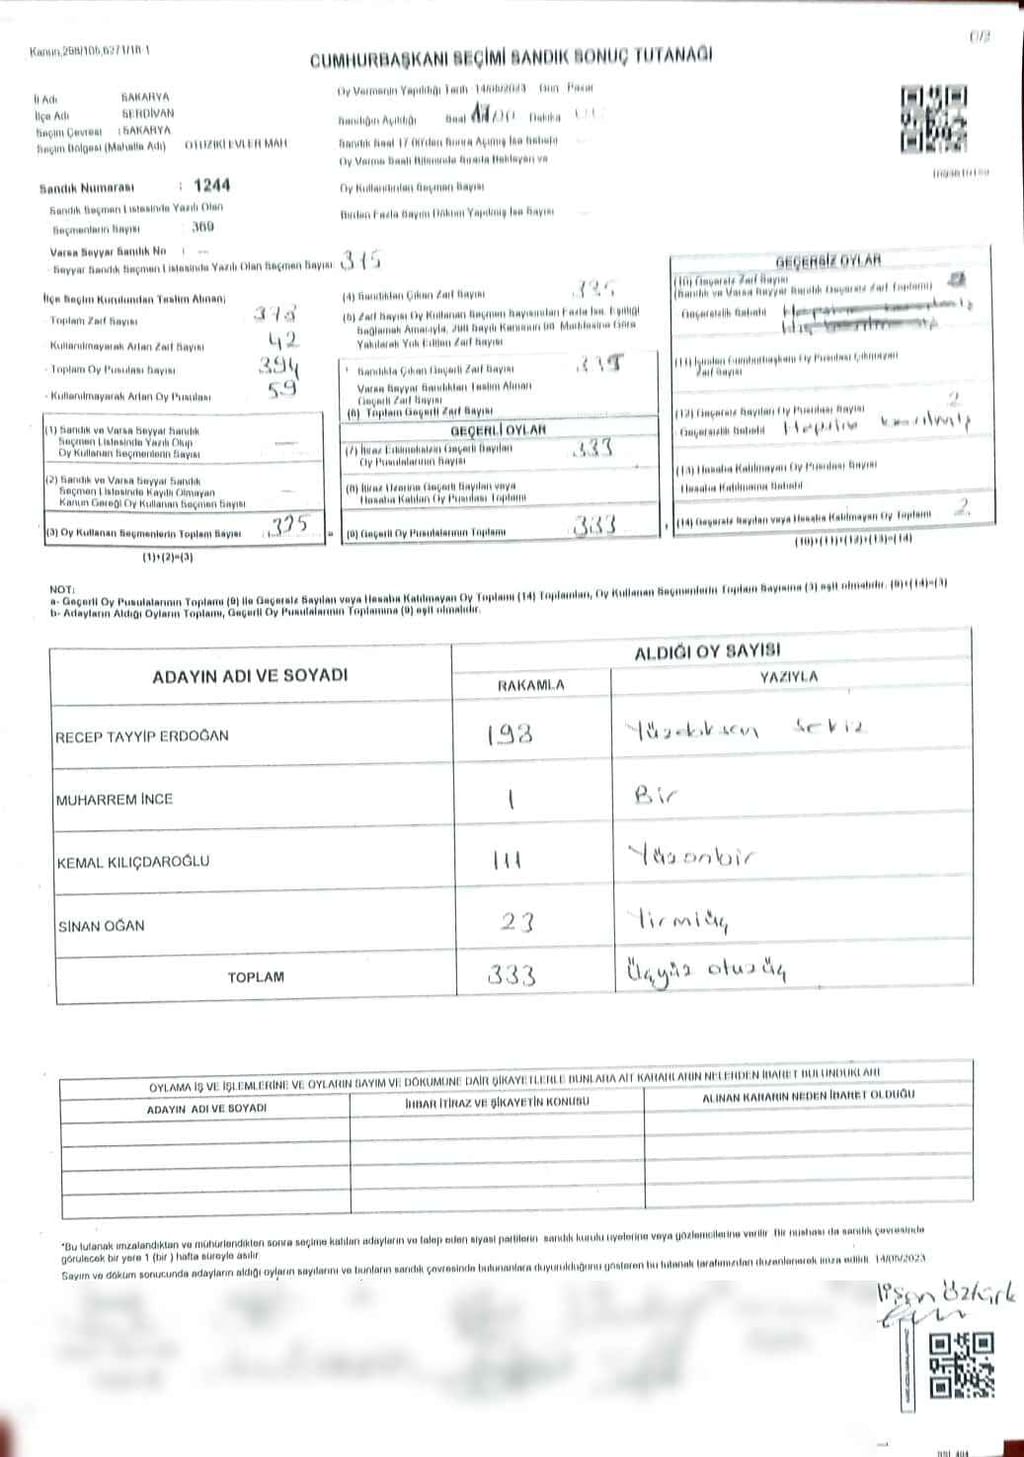 Kanun,298/105,6271/18 1
CUMHURBAŞKANI SEÇİMİ SANDIK SONUÇ TUTANAĞI
İl Adı SAKARYA
İlçe Adı SERDİVAN
Seçim Çevresi : SAKARYA
Seçim Bölgesi (Mahalle Adı) OTUZİKİ EVLER MAH
Sandık Numarası : 1244
Sandık Seçmen Listesinde Yazılı Olan
Seçmenlerin Sayısı : 369
Varsa Seyyar Sandık No : --
Seyyar Sandık Seçmen Listesinde Yazılı Olan Seçmen Sayısı
Oy Vermenin Yapıldığı Tarih 14/05/2023 Gün Pazar
Sandığın Açıldığı Saat Dakika
Sandık Saat 17 00'den Sonra Açılmış İse Sebebi
Oy Verme Saati Bitiminde Sırada Bekleyen ve
Oy Kullandırılan Seçmen Sayısı
Birden Fazla Sayım Döküm Yapılmış İse Sayısı
İlçe Seçim Kurulundan Teslim Alınan;
Toplam Zarf Sayısı
Kullanılmayarak Artan Zarf Sayısı 42
- Toplam Oy Pusulası Sayısı 394
- Kullanılmayarak Artan Oy Pusulası 59
(1) Sandık ve Varsa Seyyar Sandık
Seçmen Listesinde Yazılı Olup
Oy Kullanan Seçmenlerin Sayısı
(2) Sandık ve Varsa Seyyar Sandık
Seçmen Listesinde Kayıtlı Olmayan
Kanun Gereği Oy Kullanan Seçmen Sayısı
(3) Oy Kullanan Seçmenlerin Toplam Sayısı
(1)+(2)=(3)
(4) Sandıktan Çıkan Zarf Sayısı
(5) Zarf Sayısı Oy Kullanan Seçmen Sayısından Fazla İse, Eşitliği
Sağlamak Amacıyla, 298 Sayılı Kanunun 98. Maddesine Göre
Yakılarak Yok Edilen Zarf Sayısı
Sandıkta Çıkan Geçerli Zarf Sayısı
Varsa Seyyar Sandıktan Teslim Alınan
Geçerli Zarf Sayısı
(6) Toplam Geçerli Zarf Sayısı
GEÇERLİ OYLAR
(7) İtiraz Edilmeksizin Geçerli Sayılan
Oy Pusulalarının Sayısı 333
(8) İtiraz Üzerine Geçerli Sayılan veya
Hesaba Katılan Oy Pusulası Toplamı
(9) Geçerli Oy Pusulalarının Toplamı 333
GEÇERSİZ OYLAR
(10) Geçersiz Zarf Sayısı
(Sandık ve Varsa Seyyar Sandık Geçersiz Zarf Toplamı)
Geçersizlik Sebebi
(11) İçinden Cumhurbaşkanı Oy Pusulası Çıkmayan
Zarf Sayısı
(12) Geçersiz Sayılan Oy Pusulası Sayısı 2
Geçersizlik Sebebi
(13) Hesaba Katılmayan Oy Pusulası Sayısı
Hesaba Katılmama Sebebi
(14) Geçersiz Sayılan veya Hesaba Katılmayan Oy Toplamı 2
(10)+(11)+(12)+(13)=(14)
NOT:
a- Geçerli Oy Pusulalarının Toplamı (9) ile Geçersiz Sayılan veya Hesaba Katılmayan Oy Toplamı (14) Toplamları, Oy Kullanan Seçmenlerin Toplam Sayısına (3) eşit olmalıdır. (9)+(14)=(3)
b- Adayların Aldığı Oyların Toplamı, Geçerli Oy Pusulalarının Toplamına (9) eşit olmalıdır.
ADAYIN ADI VE SOYADI ALDIĞI OY SAYISI
RAKAMLA YAZIYLA
RECEP TAYYİP ERDOĞAN 198
MUHARREM İNCE 1 Bir
KEMAL KILIÇDAROĞLU 111 Yüzonbir
SİNAN OĞAN 23 Yirmiüç
TOPLAM 333 Üçyüz otuzüç
OYLAMA İŞ VE İŞLEMLERİNE VE OYLARIN SAYIM VE DÖKÜMÜNE DAİR ŞİKAYETLERLE BUNLARA AİT KARARLARIN NELERDEN İBARET BULUNDUKLARI
ADAYIN ADI VE SOYADI İHBAR İTİRAZ VE ŞİKAYETİN KONUSU ALINAN KARARIN NEDEN İBARET OLDUĞU
*Bu tutanak imzalandıktan ve mühürlendikten sonra seçime katılan adayların ve talep eden siyasi partilerin sandık kurulu üyelerine veya gözlemcilerine verilir. Bir nushası da sandık çevresinde
görülecek bir yere 1 (bir ) hafta süreyle asılır.
Sayım ve döküm sonucunda adayların aldığı oyların sayılarını ve bunların sandık çevresinde bulunanlara duyurulduğunu gösteren bu tutanak tarafımızdan düzenlenerek imza edildi. 14/05/2023